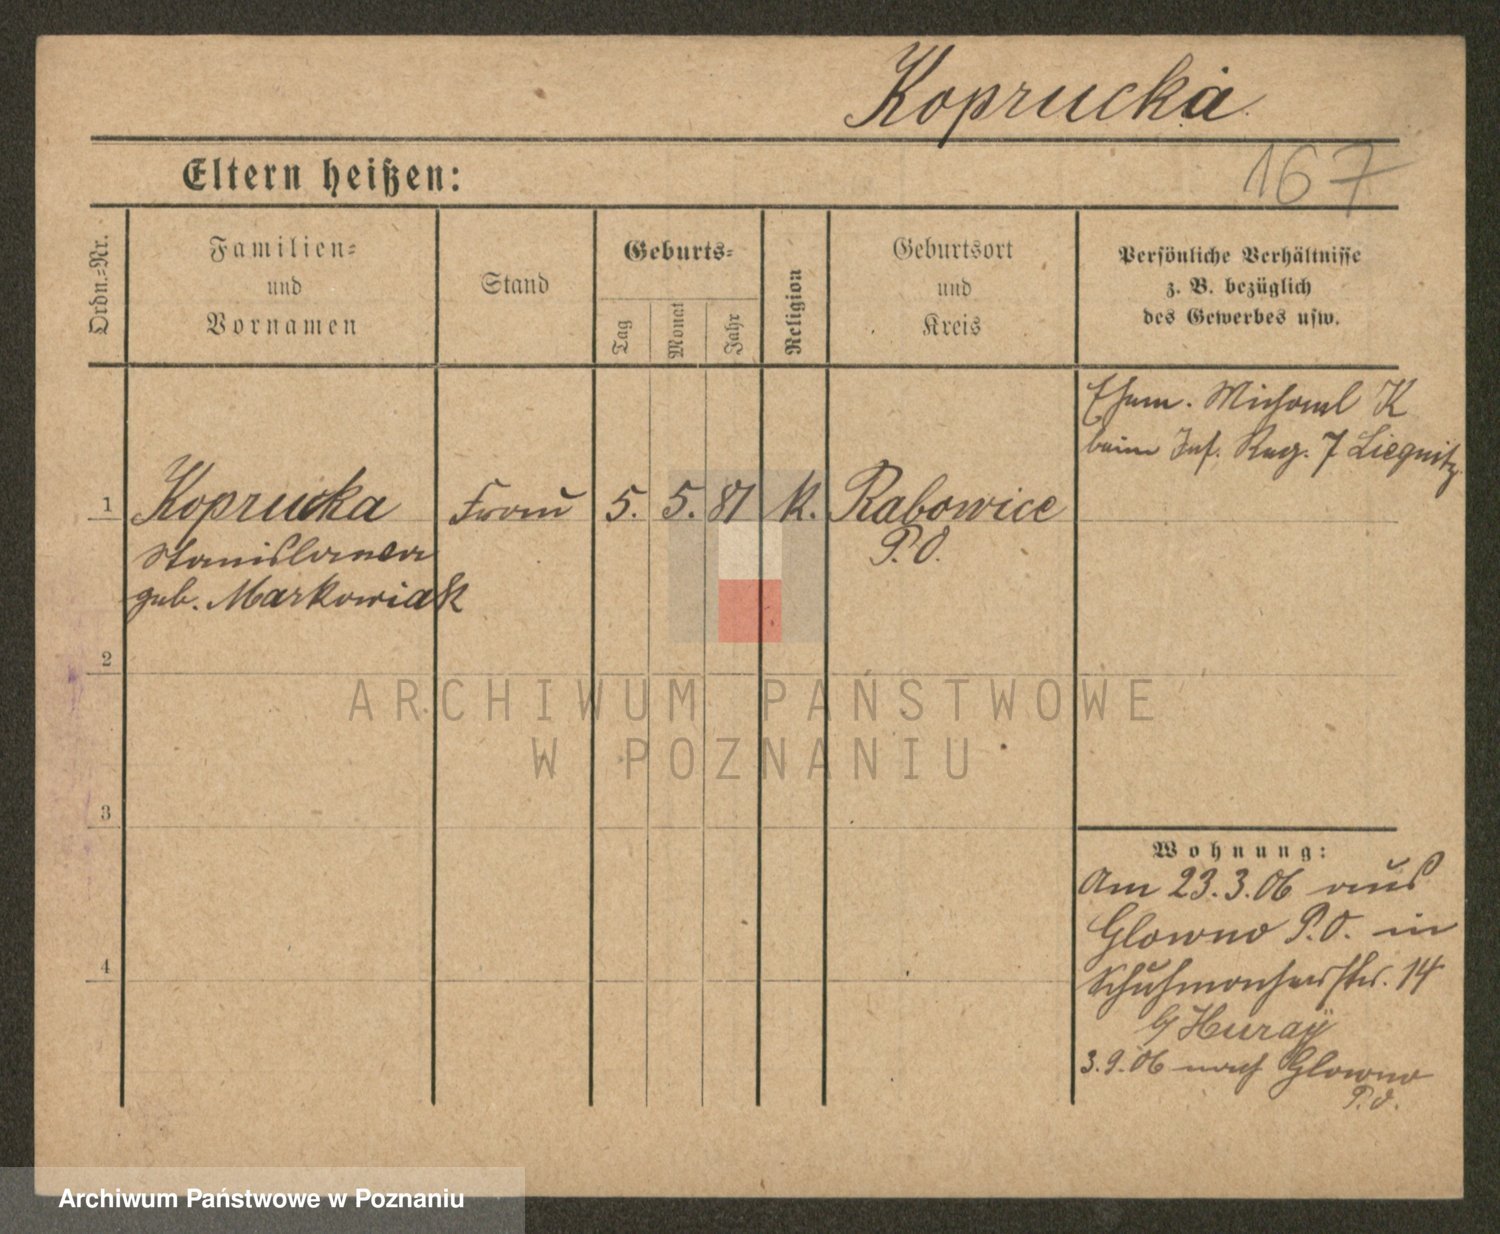 Koprucka
Eltern heißen:
167
Ordn.=Nr.
Familien=
und
Vornamen
Stand
Geburts=
Tag
Monat
Jahr
Religion
Geburtsort
und
Kreis
Persönliche Verhältnisse
z. B. bezüglich
des Gewerbes usw.
Ehem. Michael K
beim Inf. Reg. 7 Liegnitz
1 Koprucka Frau 5. 5. 81 k. Rabowice
Stanislawa P. O.
geb. Markowiak
2
ARCHIWUM PAŃSTWOWE
W POZNANIU
3
Wohnung:
Am 23.3.06 aus
Glowno P.O. in
Schuhmacherstr. 14
b/ Huray
4
3.9.06 nach Glowno
P.O.
Archiwum Państwowe w Poznaniu